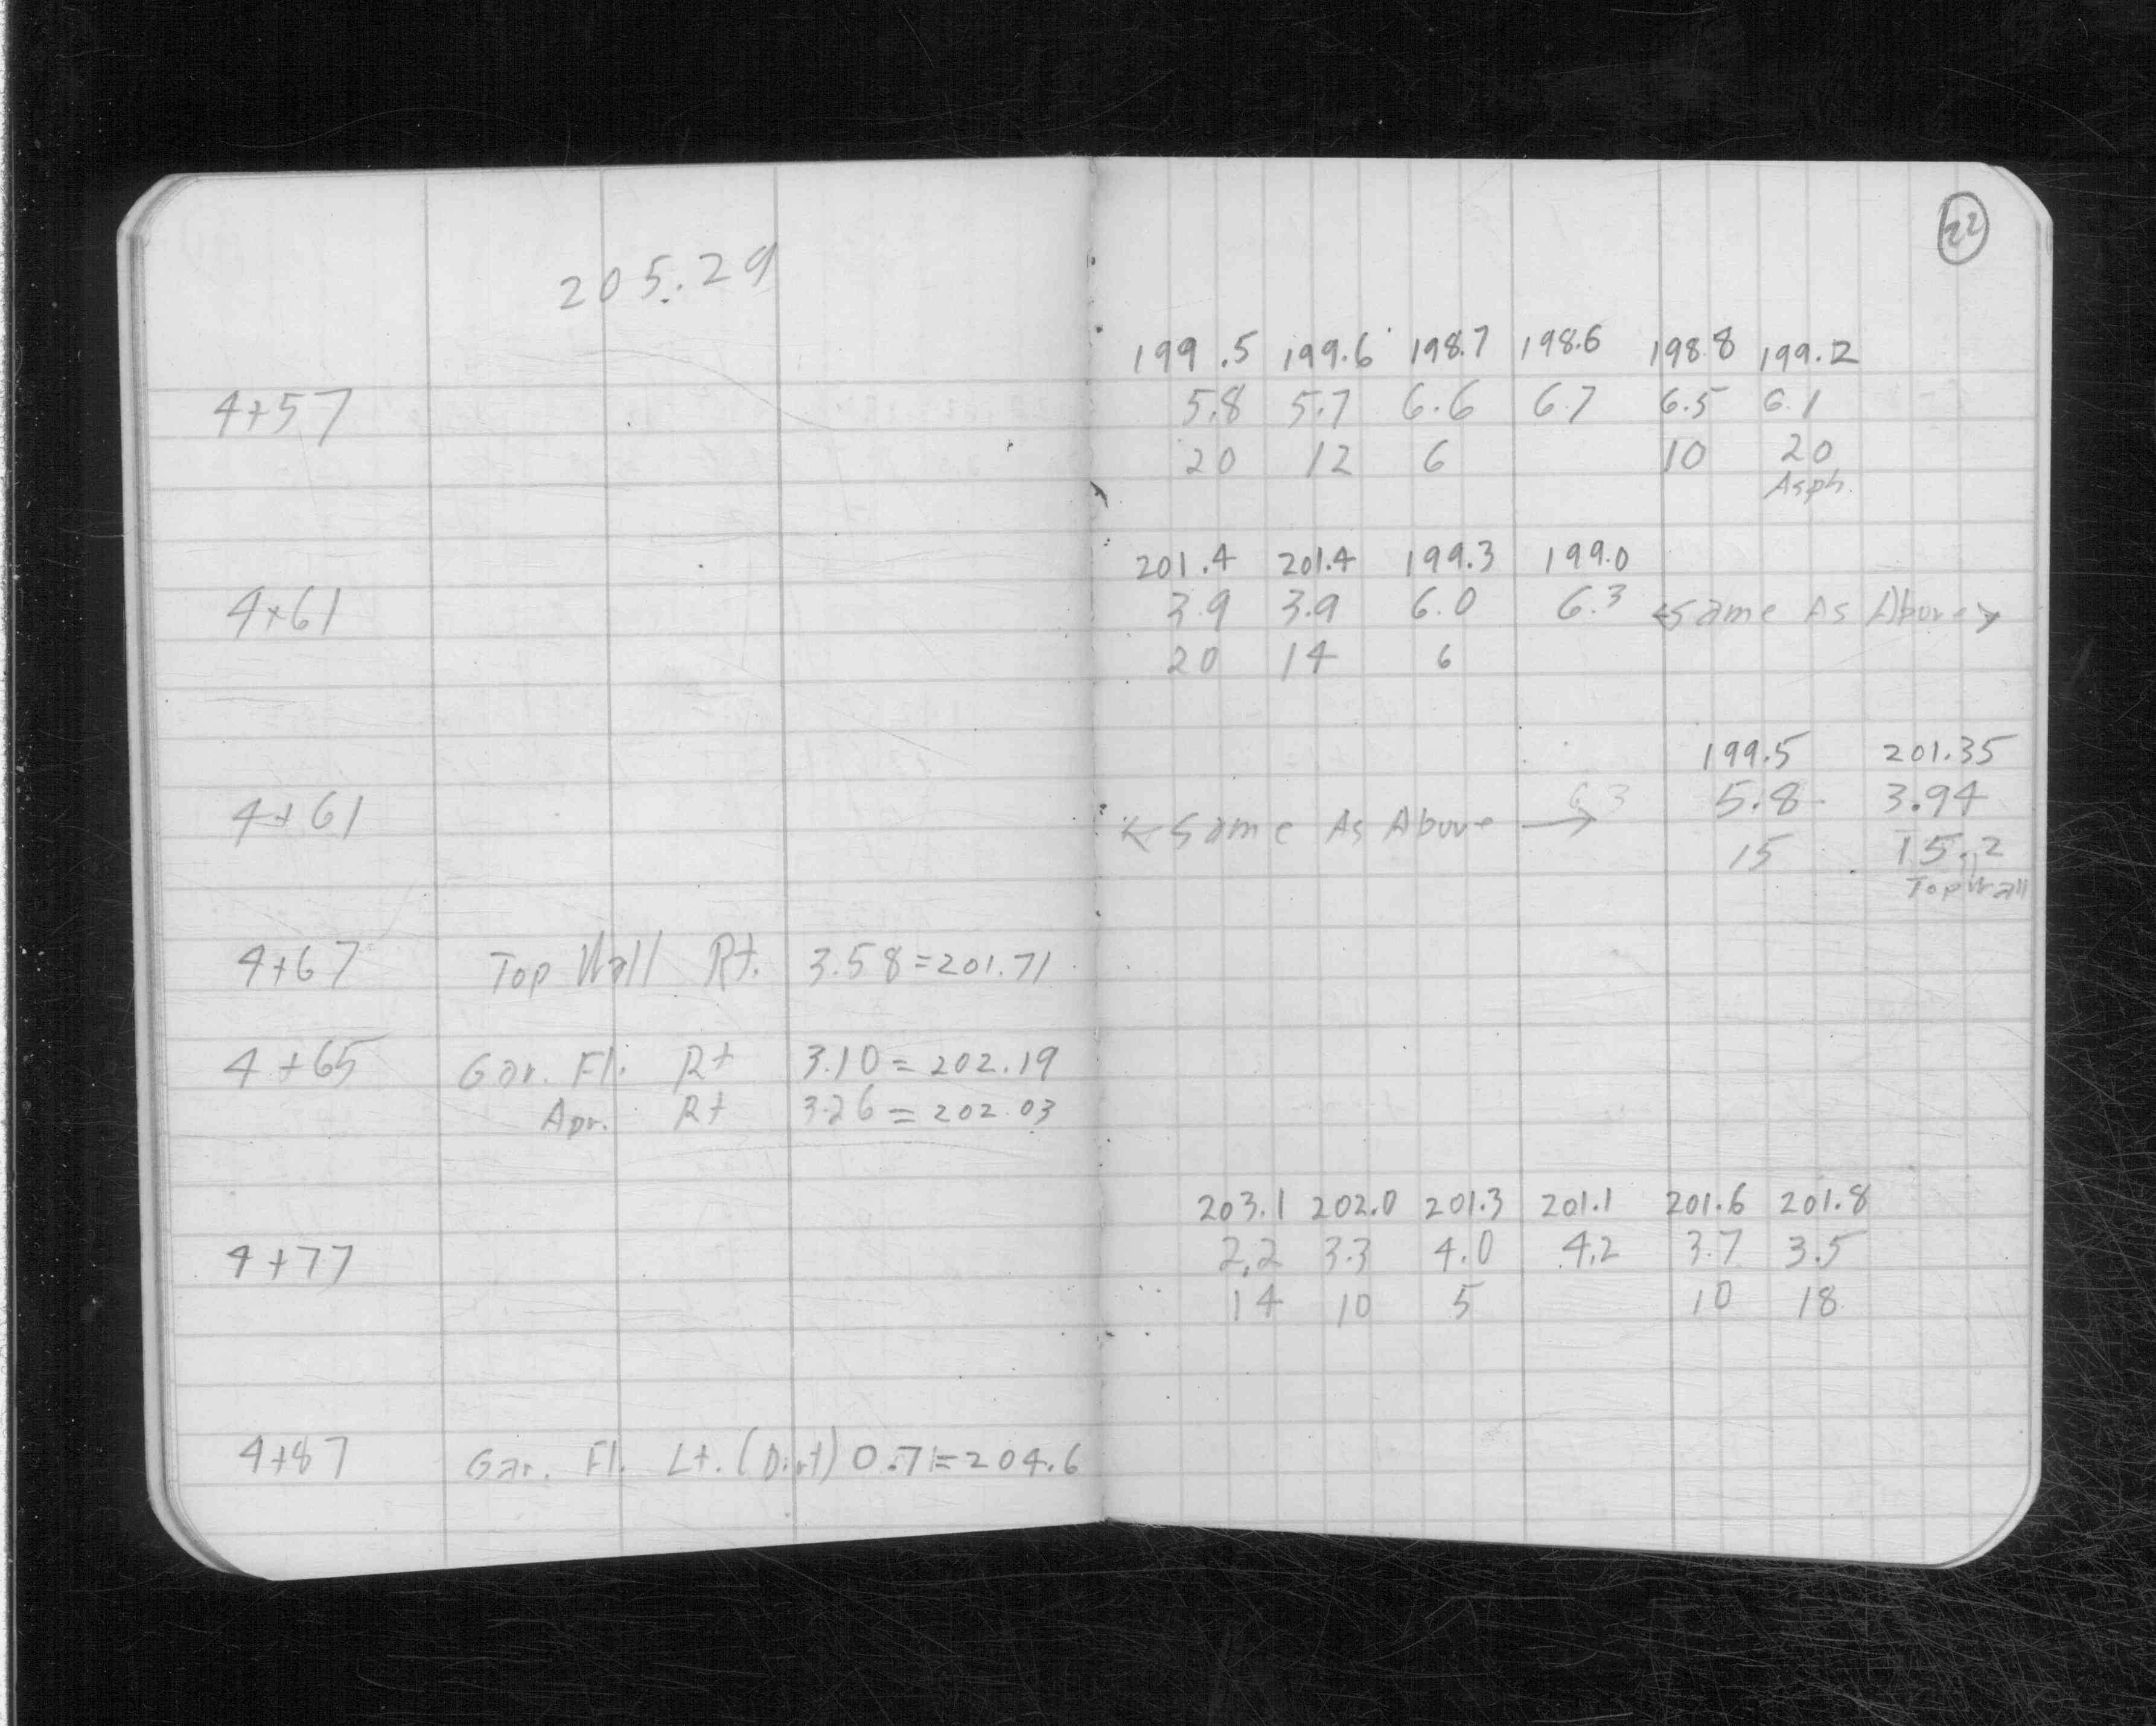 205.29
22
199.5 199.6 198.7 198.6 198.8 199.2
4+57 5.8 5.7 6.6 6.7 6.5 6.1
20 12 6 10 20
Asph.
201.4 201.4 199.3 199.0
4+61 3.9 3.9 6.0 6.3 Same As Above
20 14 6
199.5 201.35
4+61 Same As Above 6.3 5.8 3.94
15 15.2
Top Wall
4+67 Top Wall Rt. 3.58=201.71
4+65 Gar. Fl. Rt 3.10=202.19
Apr. Rt 3.26=202.03
203.1 202.0 201.3 201.1 201.6 201.8
4+77 2.2 3.3 4.0 4.2 3.7 3.5
14 10 5 10 18
4+87 Gar. Fl. Lt. (Dirt) 0.71=204.6